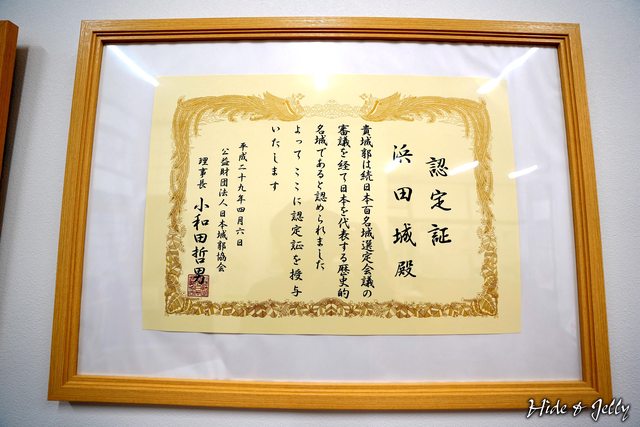 認定証
浜田城殿
貴城郭は続日本百名城選定会議の
審議を経て日本を代表する歴史的
名城であると認められました
よってここに認定証を授与
いたします
平成二十九年四月六日
公益財団法人日本城郭協会
理事長 小和田哲男
Hide & Jelly